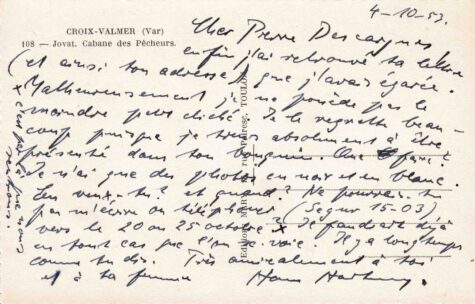 4-10-53.
CROIX-VALMER (Var)
108 — Jovat. Cabane des Pêcheurs.
Cher Pierre Descargues
enfin j'ai retrouvé ta lettre
(et ainsi ton adresse) que j'avais égarée.
Malheureusement je ne possède pas le
moindre petit cliché. Je le regrette beau-
coup puisque je tiens absolument à être
présenté dans ton bouquin. Que faire?
Je n'ai que des photos en noir et en blanc.
En veux-tu? et quand? Ne pourrais-tu
pas m'écrire ou téléphoner (Segur 15-03)
vers le 20 ou 25 octobre? x Je
en tout cas que l'on se voie. Il y a longtemps
comme tu dis. Très amicalement à toi
et à ta femme Hans Hartung.
x c'est là que nous
rentrons.
TOULON